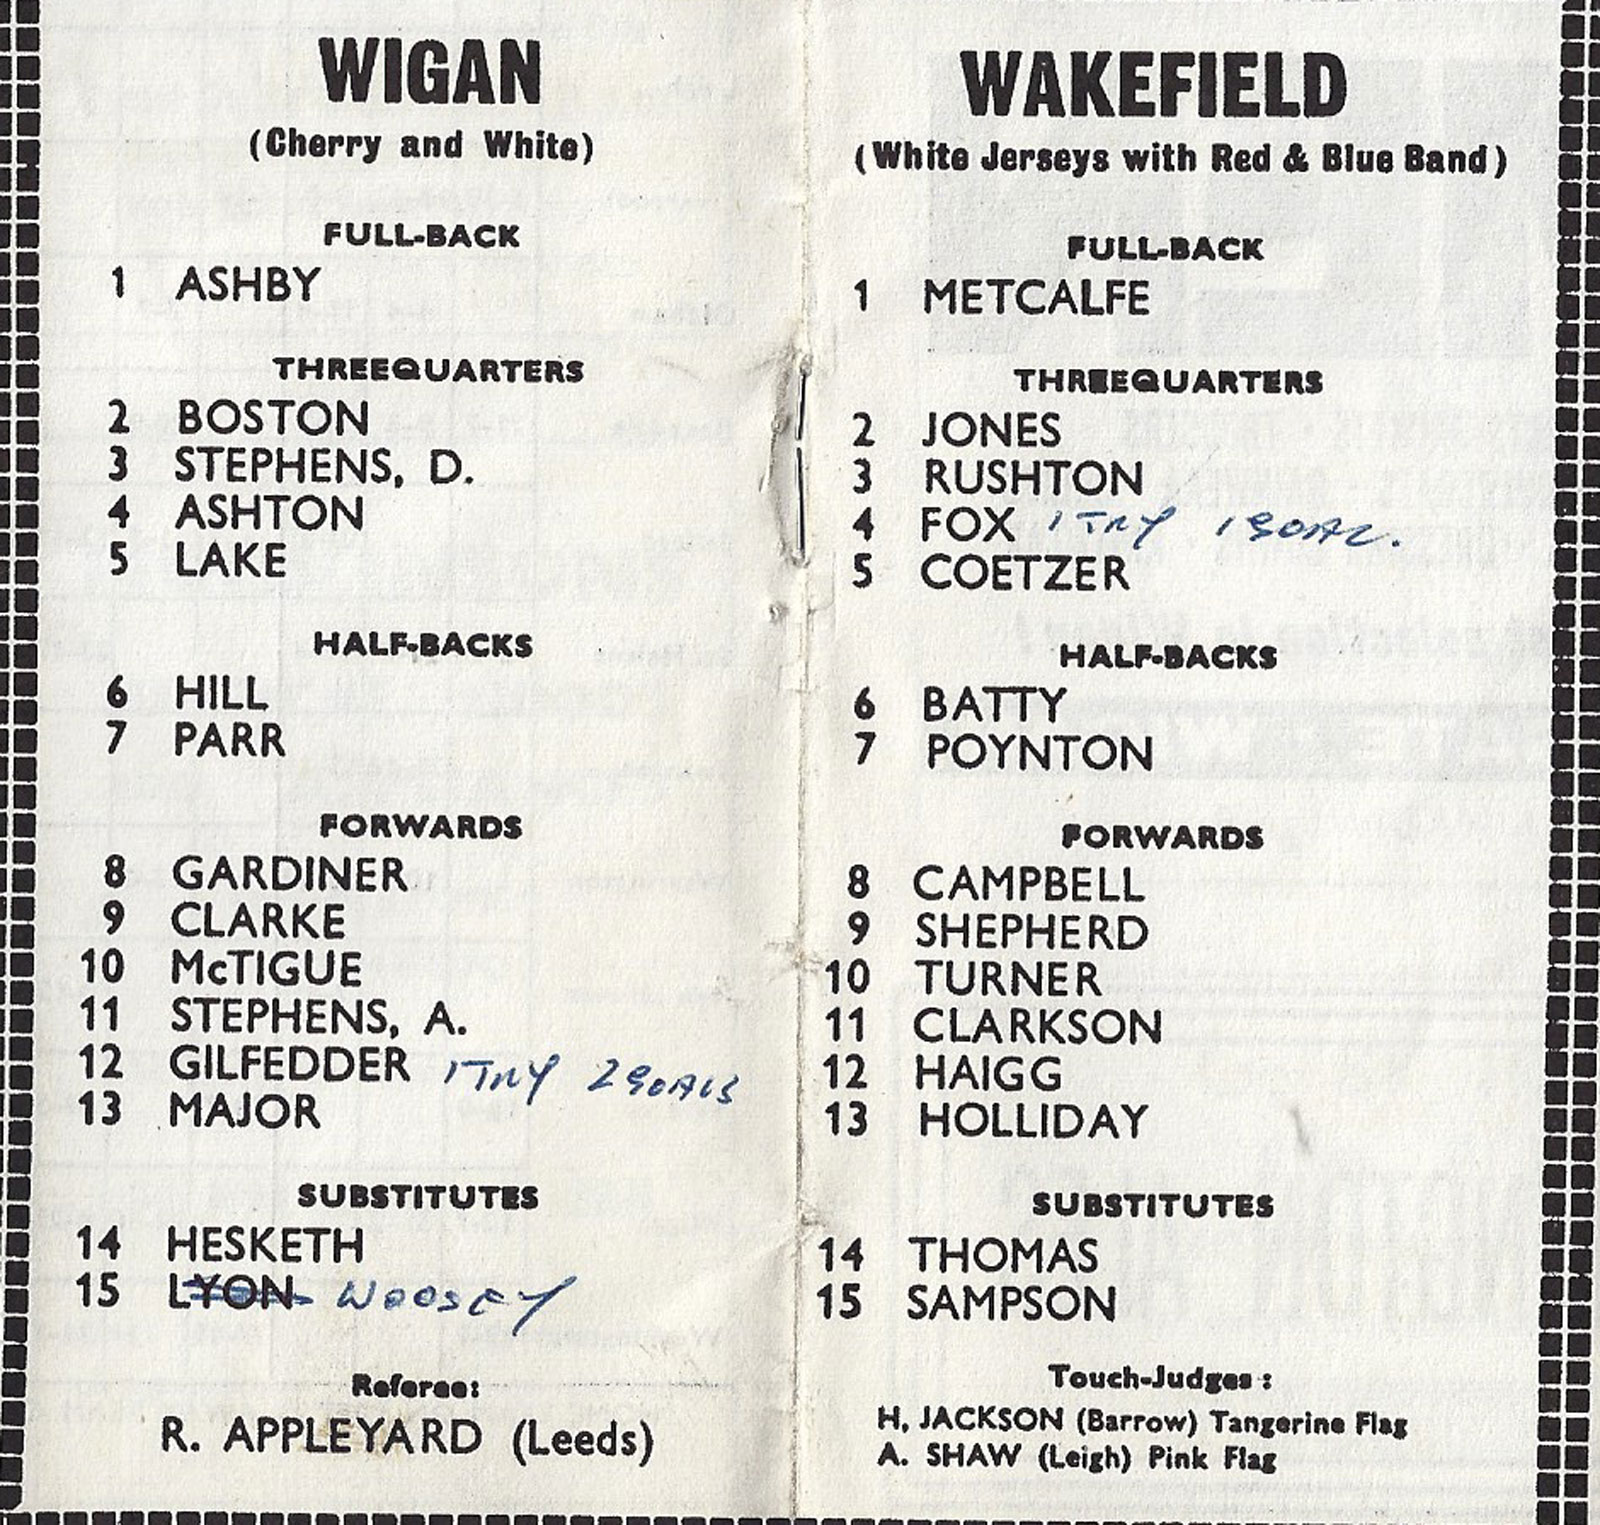 WIGAN
(Cherry and White)
FULL-BACK
1 ASHBY
THREEQUARTERS
2 BOSTON
3 STEPHENS, D.
4 ASHTON
5 LAKE
HALF-BACKS
6 HILL
7 PARR
FORWARDS
8 GARDINER
9 CLARKE
10 McTIGUE
11 STEPHENS, A.
12 GILFEDDER 1 TRY 2 GOALS
13 MAJOR
SUBSTITUTES
14 HESKETH
15 LYON WOOSEY
Referee:
R. APPLEYARD (Leeds)
WAKEFIELD
(White Jerseys with Red & Blue Band)
FULL-BACK
1 METCALFE
THREEQUARTERS
2 JONES
3 RUSHTON
4 FOX 1 TRY 1 GOAL.
5 COETZER
HALF-BACKS
6 BATTY
7 POYNTON
FORWARDS
8 CAMPBELL
9 SHEPHERD
10 TURNER
11 CLARKSON
12 HAIGG
13 HOLLIDAY
SUBSTITUTES
14 THOMAS
15 SAMPSON
Touch-Judges :
H, JACKSON (Barrow) Tangerine Flag
A. SHAW (Leigh) Pink Flag